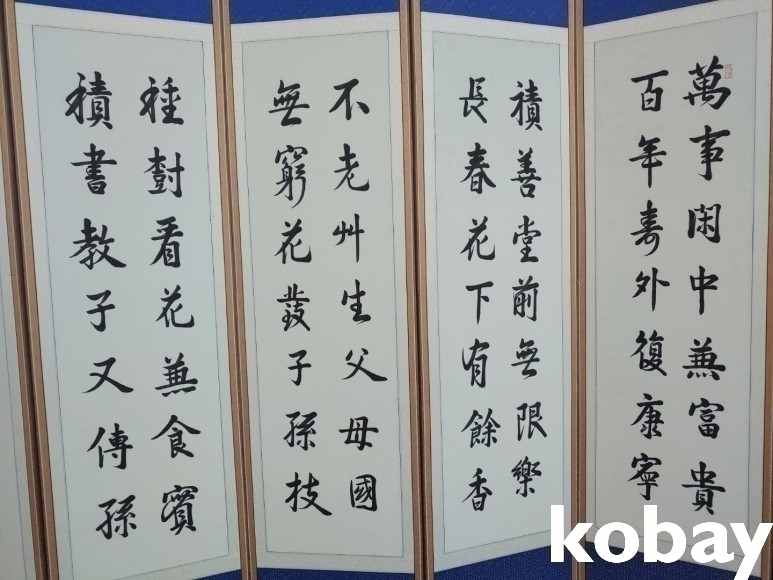 萬事閑中兼富貴
百年壽外復康寧
積善堂前無限樂
長春花下有餘香
不老艸生父母國
無窮花發子孫枝
種樹看花兼食實
積書教子又傳孫
kobay